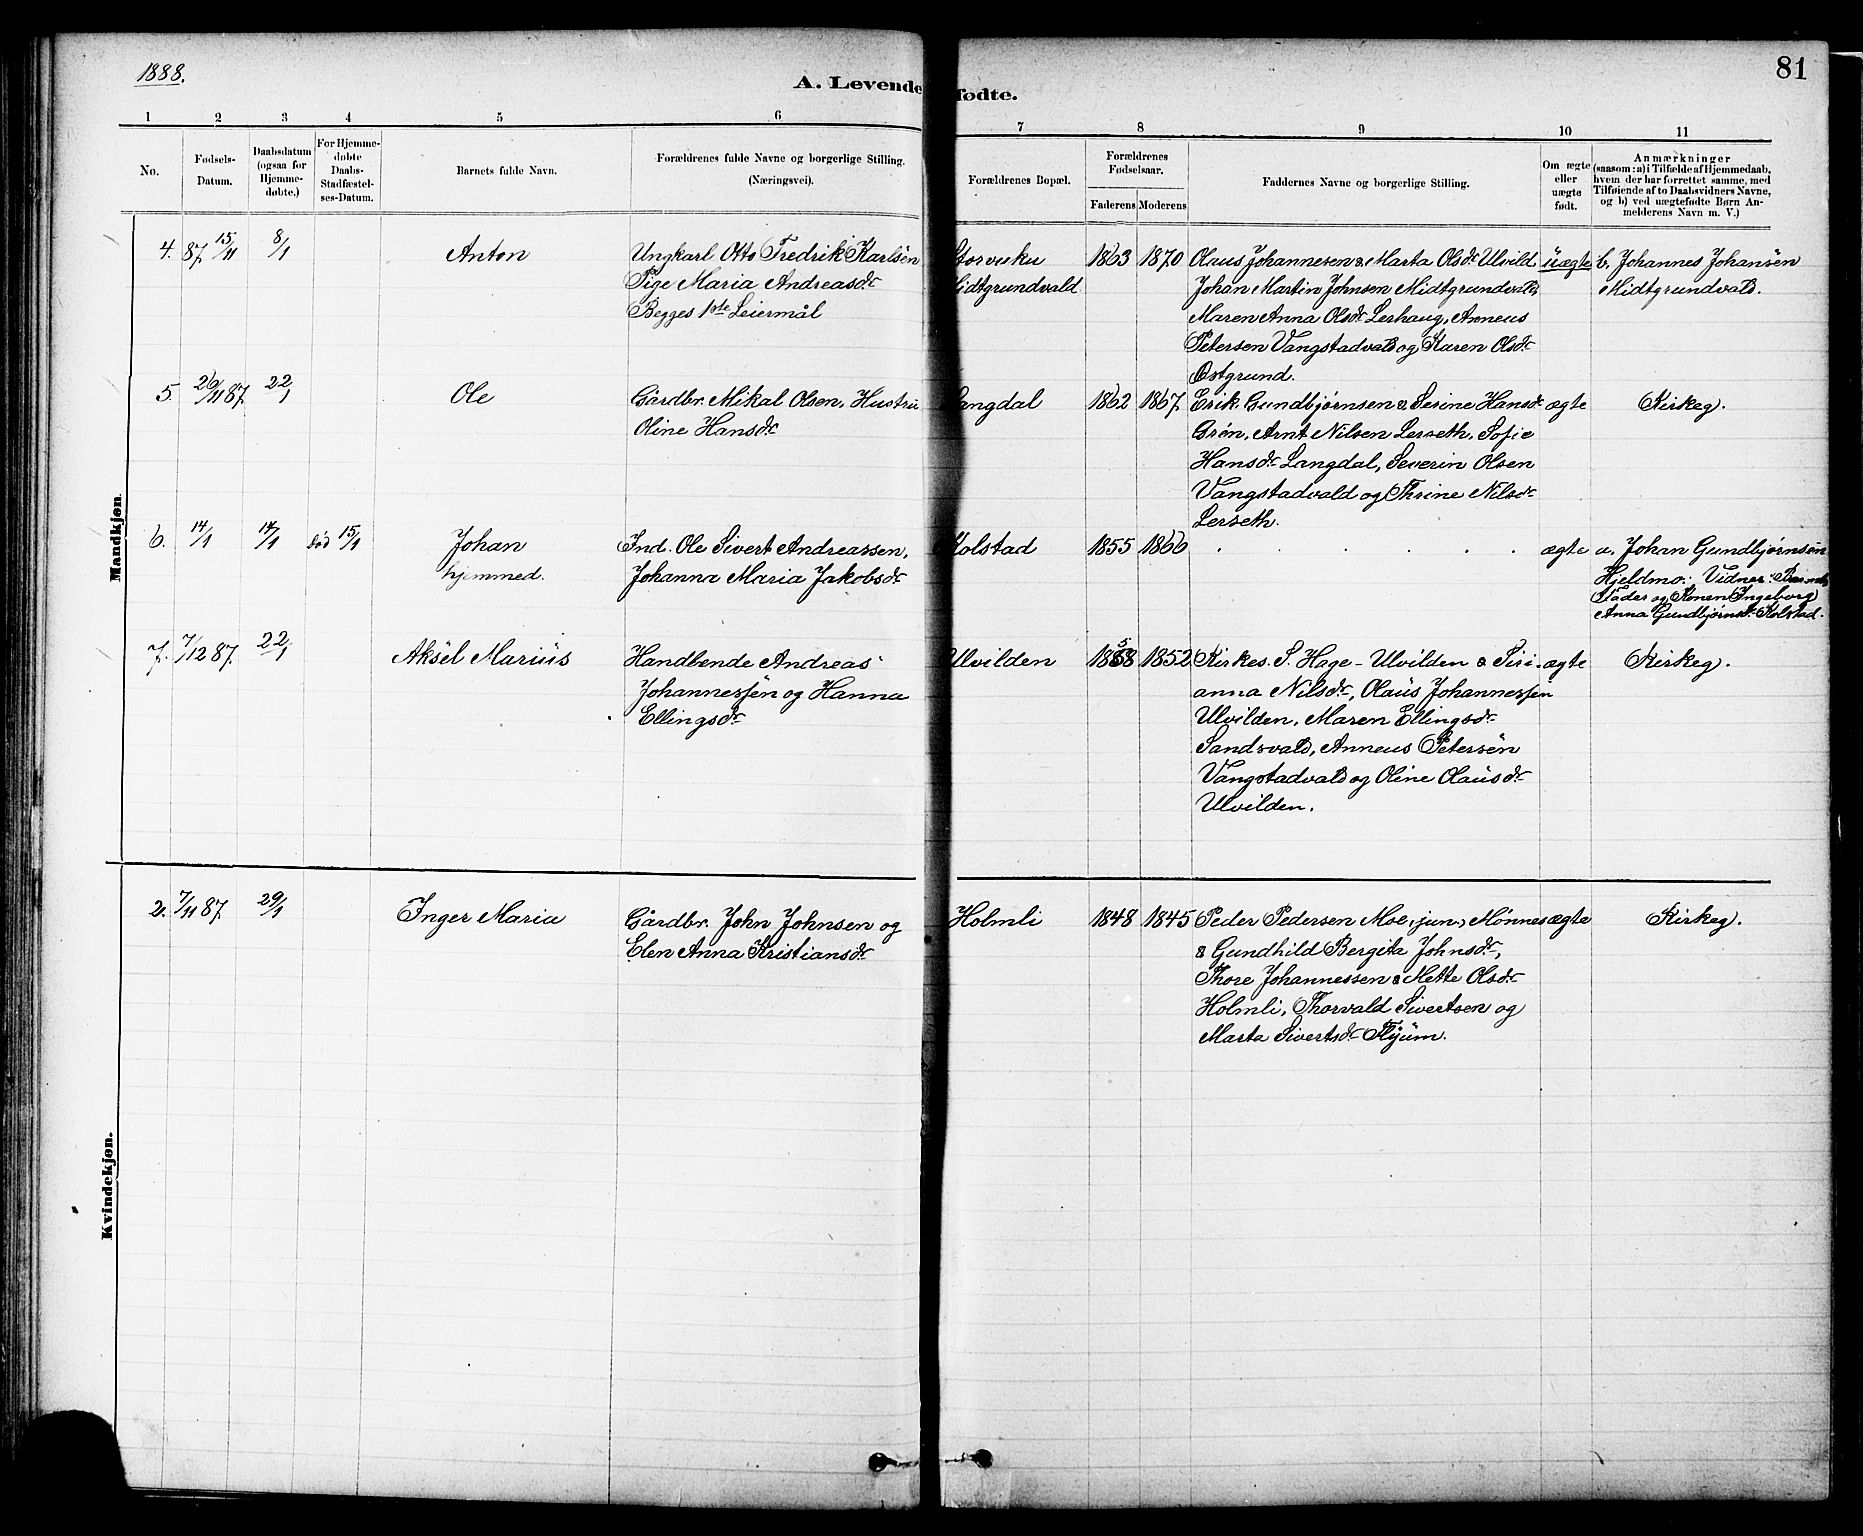 1888.
81
A. Levende fødte.
1 2 3 4 5 6 7 8 9 10 11
No.
Fødsels-
Datum.
Daabsdatum
(ogsaa for
Hjemme-
døbte.)
For Hjemme-
døbte
Daabs-
Stadfæstel-
ses-Datum.
Barnets fulde Navn.
Forældrenes fulde Navne og borgerlige Stilling.
(Næringsvei).
Forældrenes Bopæl.
Forældrenes
Fødselsaar.
Faderens Moderens
Faddernes Navne og borgerlige Stilling.
Om ægte
eller
uægte
født.
Anmærkninger
(saasom: a) i Tilfælde af Hjemmedaab,
hvem der har forrettet samme, med
Tilføiende af to Daabsvidners Navne,
og b) ved uægtefødte Børn An-
melderens Navn m. V.)
Mandkjøn.
4. 87 15/11 8/1 Anton
Ungkarl Otto Fredrik Karlsen
Pige Maria Andreasdr
Begges 1ste Leiermål
Storvuku
Midtgrundvald
1863 1870
Olaus Johannesen & Marta Olsdr Ulvild
Johan Martin Johnsen Midtgrundvald,
Maren Anna Olsdr Lerhaug, Anneus
Petersen Vangstadvald og Karen Olsdr
Østgrund.
uægte
b. Johannes Johansen
Midtgrundvald.
5. 26/11 87. 22/1 Ole
Gårdbr. Mikal Olsen, Hustru
Oline Hansdr
Langdal 1862 1867.
Erik Gundbjørnsen & Serine Hansdr
Grøn, Arnt Nilsen Lerseth, Sofie
Hansdr Langdal, Severin Olsen
Vangstadvald og Thrine Nilsdr
Lerseth.
ægte Kirkeg.
6. 14/1 14/1 død 15/1 Johan
hjemmed.
Ind. Ole Sivert Andreassen,
Johanna Maria Jakobsdr
Kolstad 1855 1866 . . . . . ægte
a. Johan Gundbjørnsen
Hjeldmo: Vidner: Barnets
Fader og Konen Ingeborg
Anna Gundbjørnsdr Kolstad.
7. 7/12 87. 22/1 Aksel Marius
Handlende Andreas
Johannessen og Hanna
Ellingsdr
Ulvilden 1858 1852
Kirkes. S. Hage - Ulvilden & Siri-
anna Nilsdr, Olaus Johannessen
Ulvilden, Maren Ellingsdr
Sandsvald, Anneus Petersen
Vangstadvald og Oline Olausdr
Ulvilden.
ægte Kirkeg.
Kvindekjøn.
2. 7/11 87. 29/1 Inger Maria
Gårdbr. John Johnsen og
Elen Anna Kristiansdr
Holmli 1848 1845
Peder Pedersen Moe, jun, Mønnes
& Gundhild Bergita Johnsdr,
Thore Johannessen & Mette Olsdr
Holmli, Thorvald Sivertsen og
Marta Sivertsdr Flyum.
ægte Kirkeg.